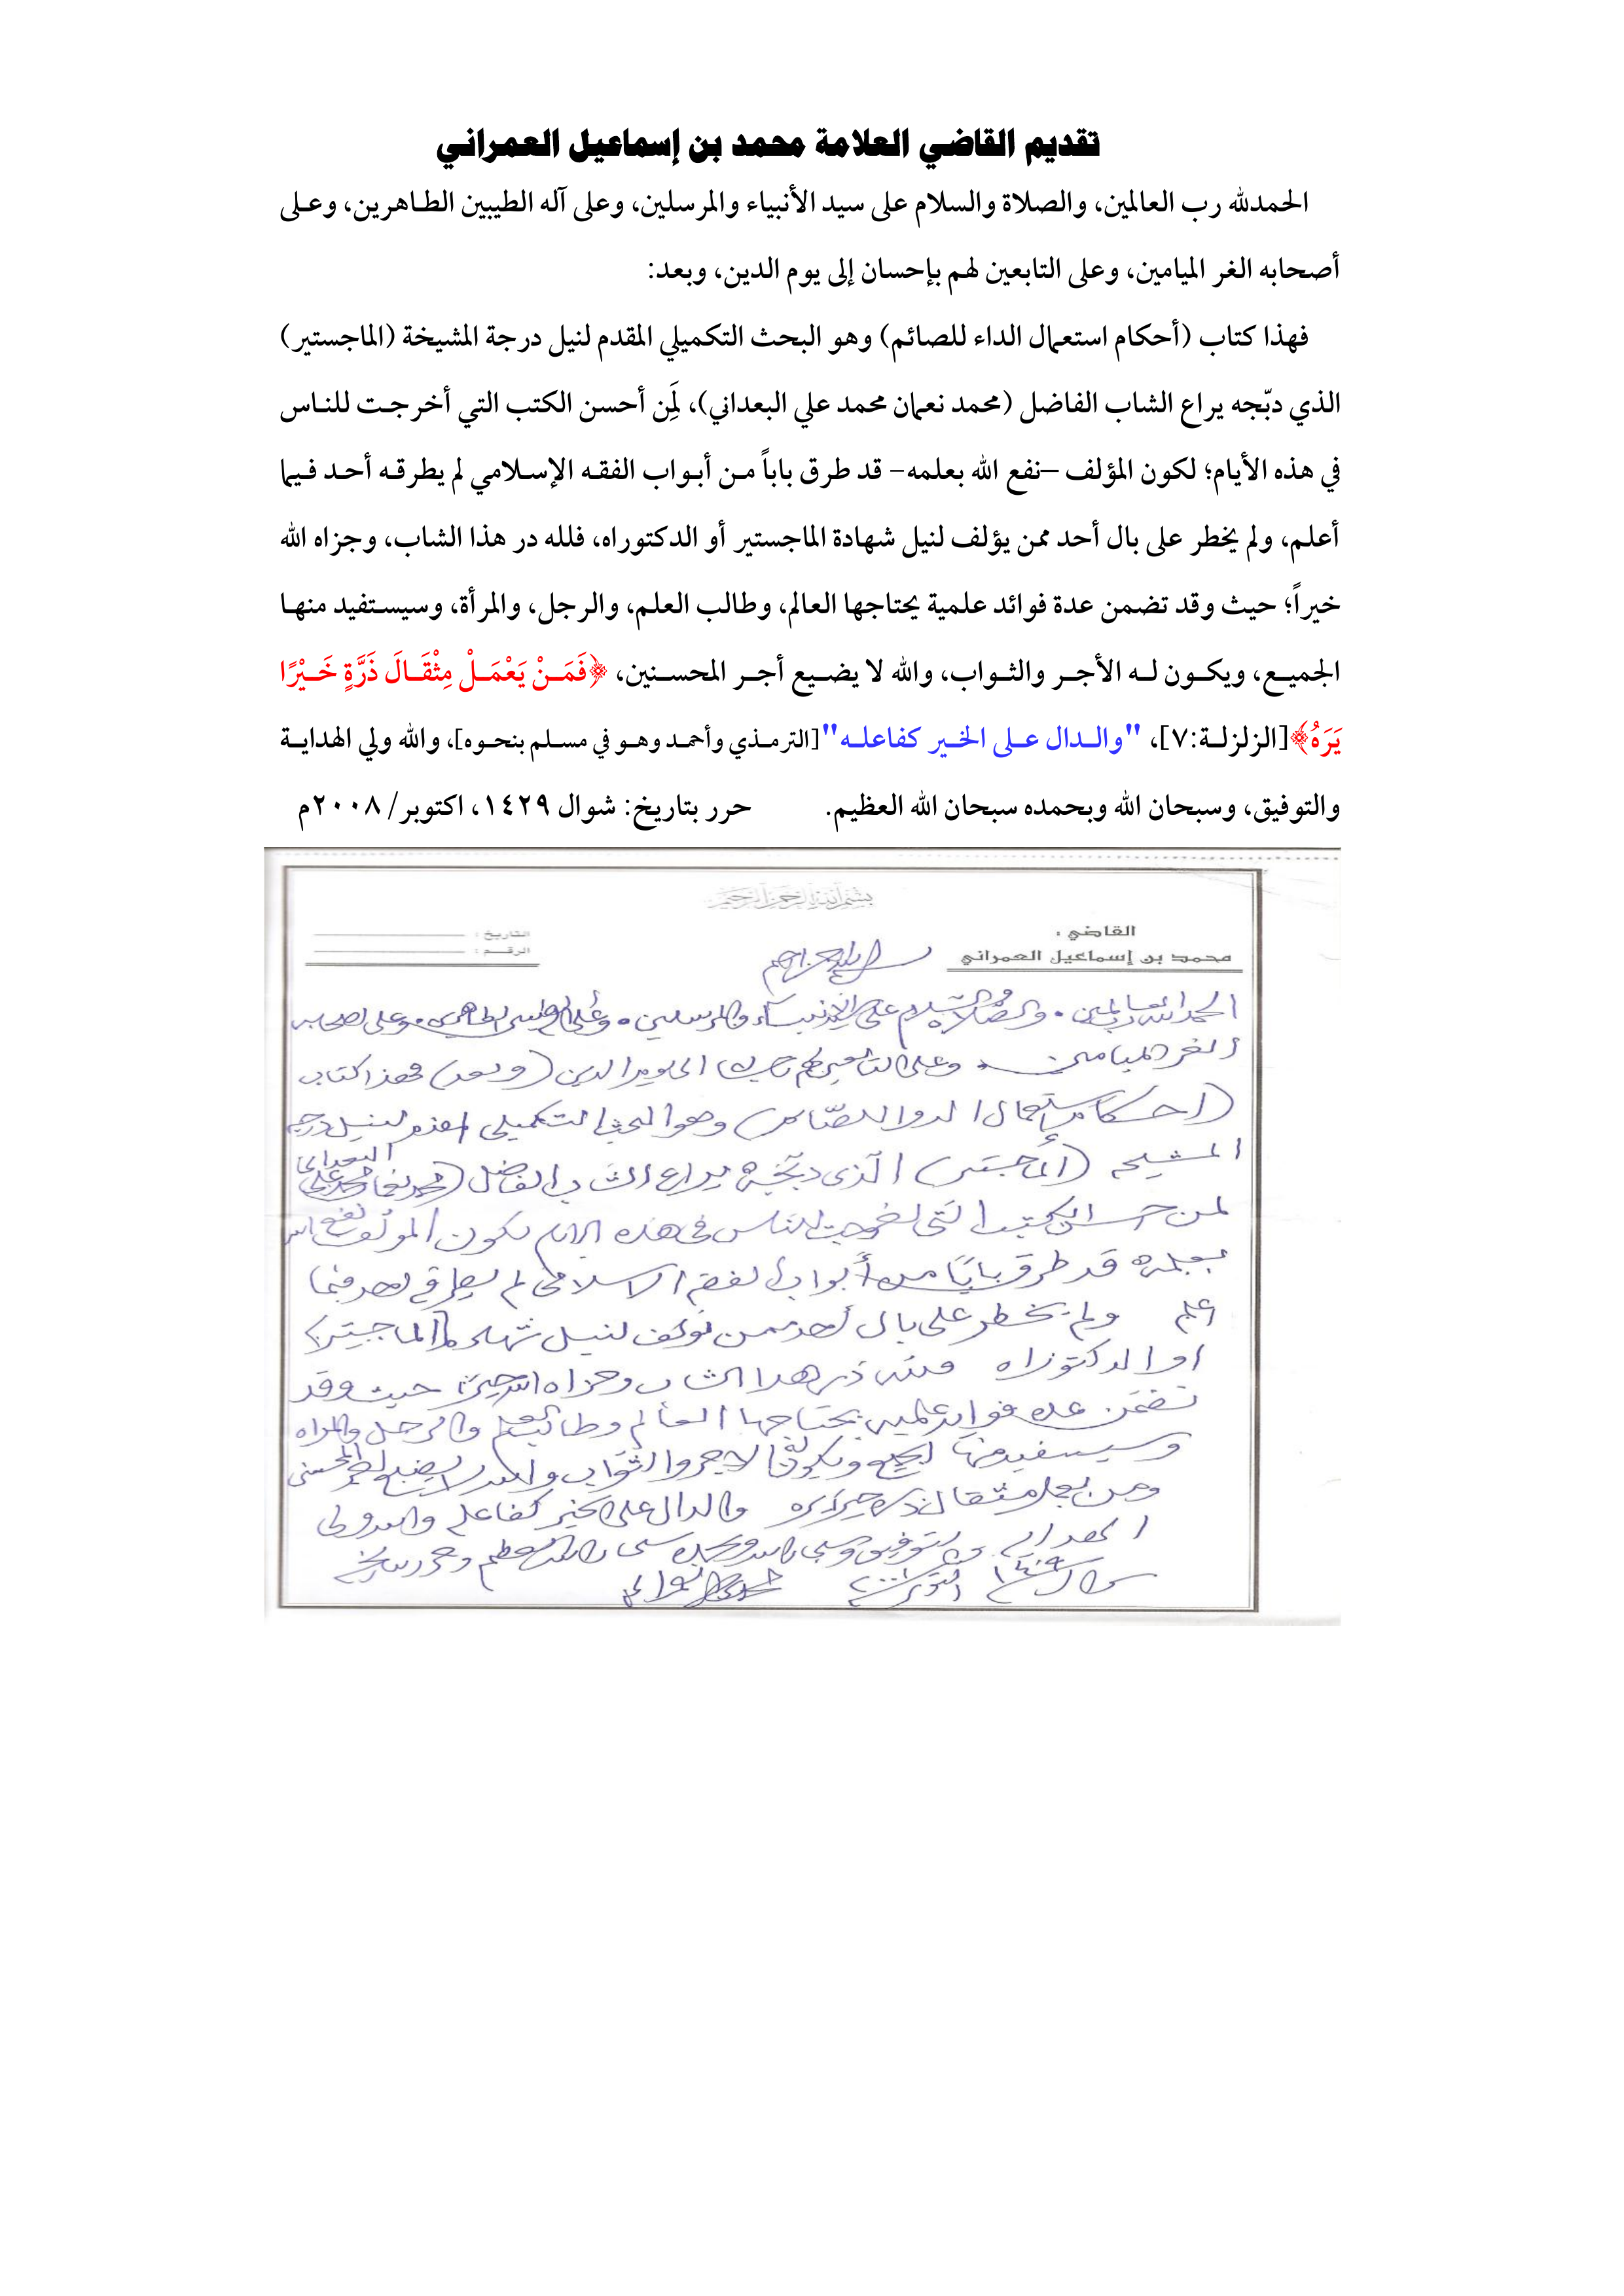 تقديم القاضي العلامة محمد بن إسماعيل العمراني
الحمدلله رب العالمين، والصلاة والسلام على سيد الأنبياء والمرسلين، وعلى آله الطيبين الطاهرين، وعلى
أصحابه الغر الميامين، وعلى التابعين لهم بإحسان إلى يوم الدين، وبعد:
فهذا كتاب (أحكام استعمال الداء للصائم) وهو البحث التكميلي المقدم لنيل درجة المشيخة (الماجستير)
الذي دبّجه يراع الشاب الفاضل (محمد نعمان محمد علي البعداني)، لَمِن أحسن الكتب التي أخرجت للناس
في هذه الأيام؛ لكون المؤلف –نفع الله بعلمه- قد طرق باباً من أبواب الفقه الإسلامي لم يطرقه أحد فيما
أعلم، ولم يخطر على بال أحد ممن يؤلف لنيل شهادة الماجستير أو الدكتوراه، فلله در هذا الشاب، وجزاه الله
خيراً؛ حيث وقد تضمن عدة فوائد علمية يحتاجها العالم، وطالب العلم، والرجل، والمرأة، وسيستفيد منها
الجميع، ويكون له الأجر والثواب، والله لا يضيع أجر المحسنين، ﴿فَمَنْ يَعْمَلْ مِثْقَالَ ذَرَّةٍ خَيْرًا
يَرَهُ﴾[الزلزلة:٧]، "والدال على الخير كفاعله"[الترمذي وأحمد وهو في مسلم بنحوه]، والله ولي الهداية
والتوفيق، وسبحان الله وبحمده سبحان الله العظيم. حرر بتاريخ: شوال ١٤٢٩، اكتوبر/ ٢٠٠٨م
بسم الله الرحمن الرحيم
القاضي :
محمد بن إسماعيل العمراني
التاريخ :
الرقم :
بسم الله الرحمن الرحيم
الحمد لله رب العالمين . والصلاة والسلام على الأنبياء والمرسلين . وعلى الطاهرين . وعلى اصحابه
الغر الميامين . وعلى التابعين لهم الى يوم الدين (وبعد) فهذا كتاب
(احكام استعمال الدوا للصائم) وهو البحث التكميلي المقدم لنيل درجة
المشيخه (الماجستير) الذي دبجه يراع الشاب الفاضل (محمد نعمان محمد علي البعداني)
لمن احسن الكتب التي اخرجت للناس في هذه الايام لكون المؤلف نفع الله
بعلمه قد طرق بابًا من أبواب الفقه الاسلامي لم يطرقه احد فيما
اعلم ولم يخطر على بال أحد ممن يؤلف لنيل شهادة الماجستير
او الدكتوراه فلله در هذا الشاب وجزاه الله خيرا حيث وقد
تضمن عدة فوايد علميه يحتاجها العالم وطالب العلم والرجل والمراه
وسيستفيد منها الجميع ويكون له الاجر والثواب والله لا يضيع اجر المحسنين
ومن يعمل مثقال ذرة خيرا يره والدال على الخير كفاعله والله ولي
الهدايه والتوفيق وسبحان الله وبحمده سبحان الله العظيم وحرر بتاريخ
شوال سنة ١٤٢٩ اكتوبر ٢٠٠٨ محمد العمراني